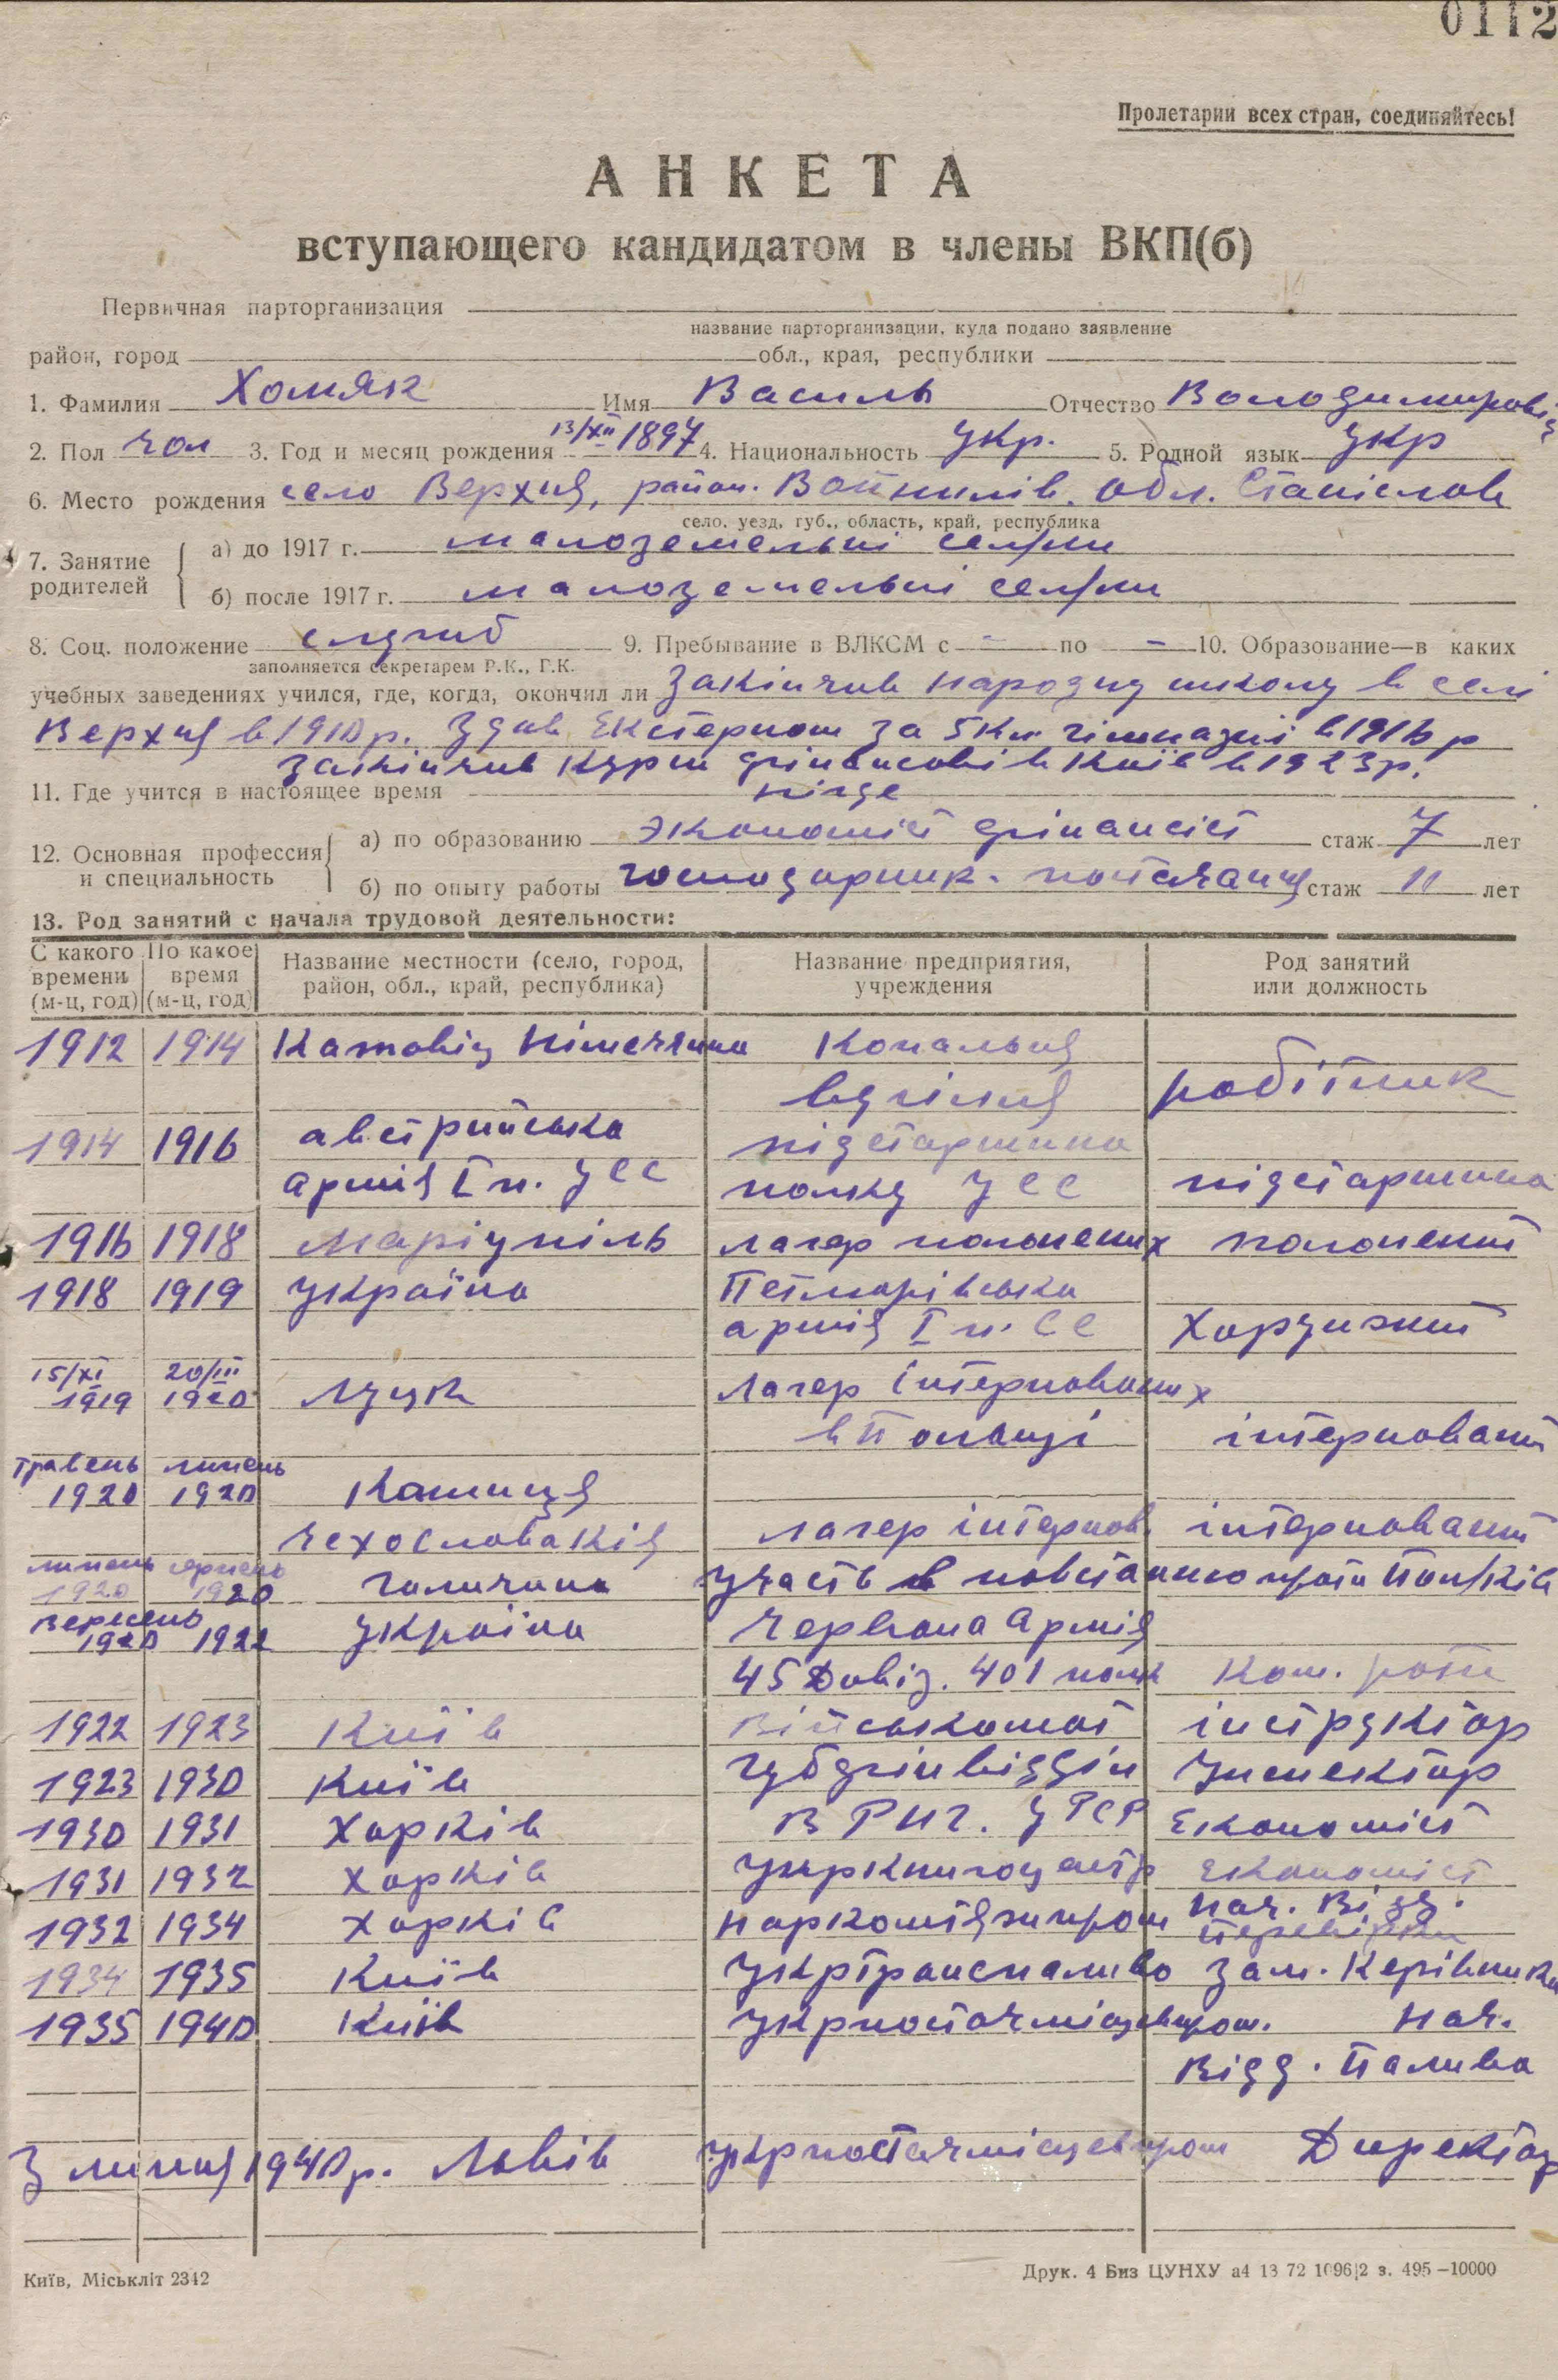 0112
Пролетарии всех стран, соединяйтесь!
АНКЕТА
вступающего кандидатом в члены ВКП(б)
Первичная парторганизация
название парторганизации, куда подано заявление
район, город обл., края, республики
1. Фамилия Хомяк Имя Василь Отчество Володимирович
2. Пол чол 3. Год и месяц рождения 13/XII 1897 4. Национальность Укр. 5. Родной язык Укр
6. Место рождения село Верхня, район. Войнилів. обл. Станіслав
село, уезд, губ., область, край, республика
7. Занятие родителей
а) до 1917 г. малоземельні сел/ни
б) после 1917 г. малоземельні сел/ни
8. Соц. положение служб 9. Пребывание в ВЛКСМ с - по - 10. Образование—в каких
заполняется секретарем Р.К., Г.К.
учебных заведениях учился, где, когда, окончил ли Закінчив народну школу в селі
Верхня в 1910 р. Здав Екстерном за 5 кл гімназиі в 1916 р
Закінчив курси фінансові в Київ в 1923 р.
11. Где учится в настоящее время нігде
12. Основная профессия и специальность
а) по образованию Экономіст фінансіст стаж 7 лет
б) по опыту работы господарник. постачання стаж 11 лет
13. Род занятий с начала трудовой деятельности:
С какого времени (м-ц, год) По какое время (м-ц, год) Название местности (село, город, район, обл., край, республика) Название предприятия, учреждения Род занятий или должность
1912 1914 Катовіц Німеччина Копальня
вугілля робітник
1914 1916 австрийська підстаршина
армія I п. УСС полку УСС підстаршина
1916 1918 Маріупіль лагер полонених полонений
1918 1919 Україна Петлюрівська
армія I п. СС Хорунжий
15/XI 1919 20/III 1920 Луцк Лагер інтернованих
в Польщі інтернований
травень 1920 липень 1920 Кошиця
Чехословакія лагер інтернов. інтернований
липень 1920 серпень 1920 Галичина Участь в повстанню проти Пол/ків
Вересень 1920 1922 Україна Червона Армія
45 Дивіз. 401 полк Ком. роти
1922 1923 Київ Військомат інструктор
1923 1930 Київ Губфінвідділ Инспектор
1930 1931 Харків ВРНГ. УРСР Економіст
1931 1932 Харків Укркнигоцентр економіст
1932 1934 Харків Наркомтяжпром Нач. Відд.
перевірки
1934 1935 Київ Укртранспаливо Зам. Керівника
1935 1940 Київ Укрпостачмісцевпром. Нач.
Відд. Палива
З липня 1940 р. Львів Укрпостачмісцевпром Директор
Київ, Міськліт 2342 Друк. 4 Биз ЦУНХУ а4 13 72 1096|2 з. 495 —10000